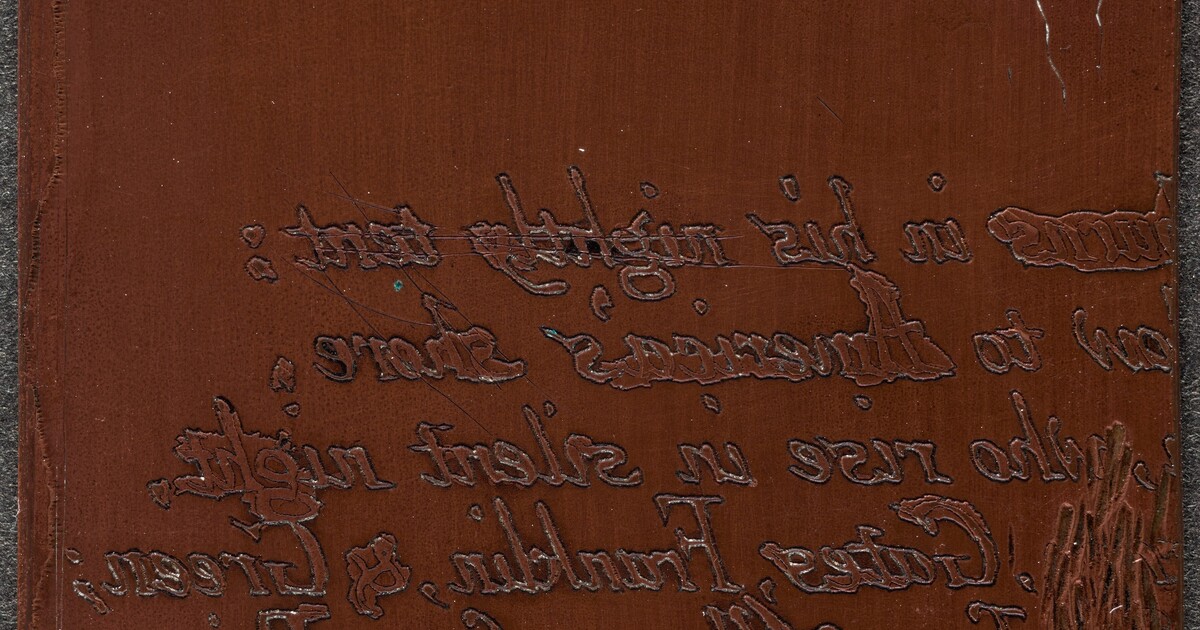 burns in his nightly tent:
ow to Americas shore:
, who rise in silent night,
, Gates, Franklin, & Green;